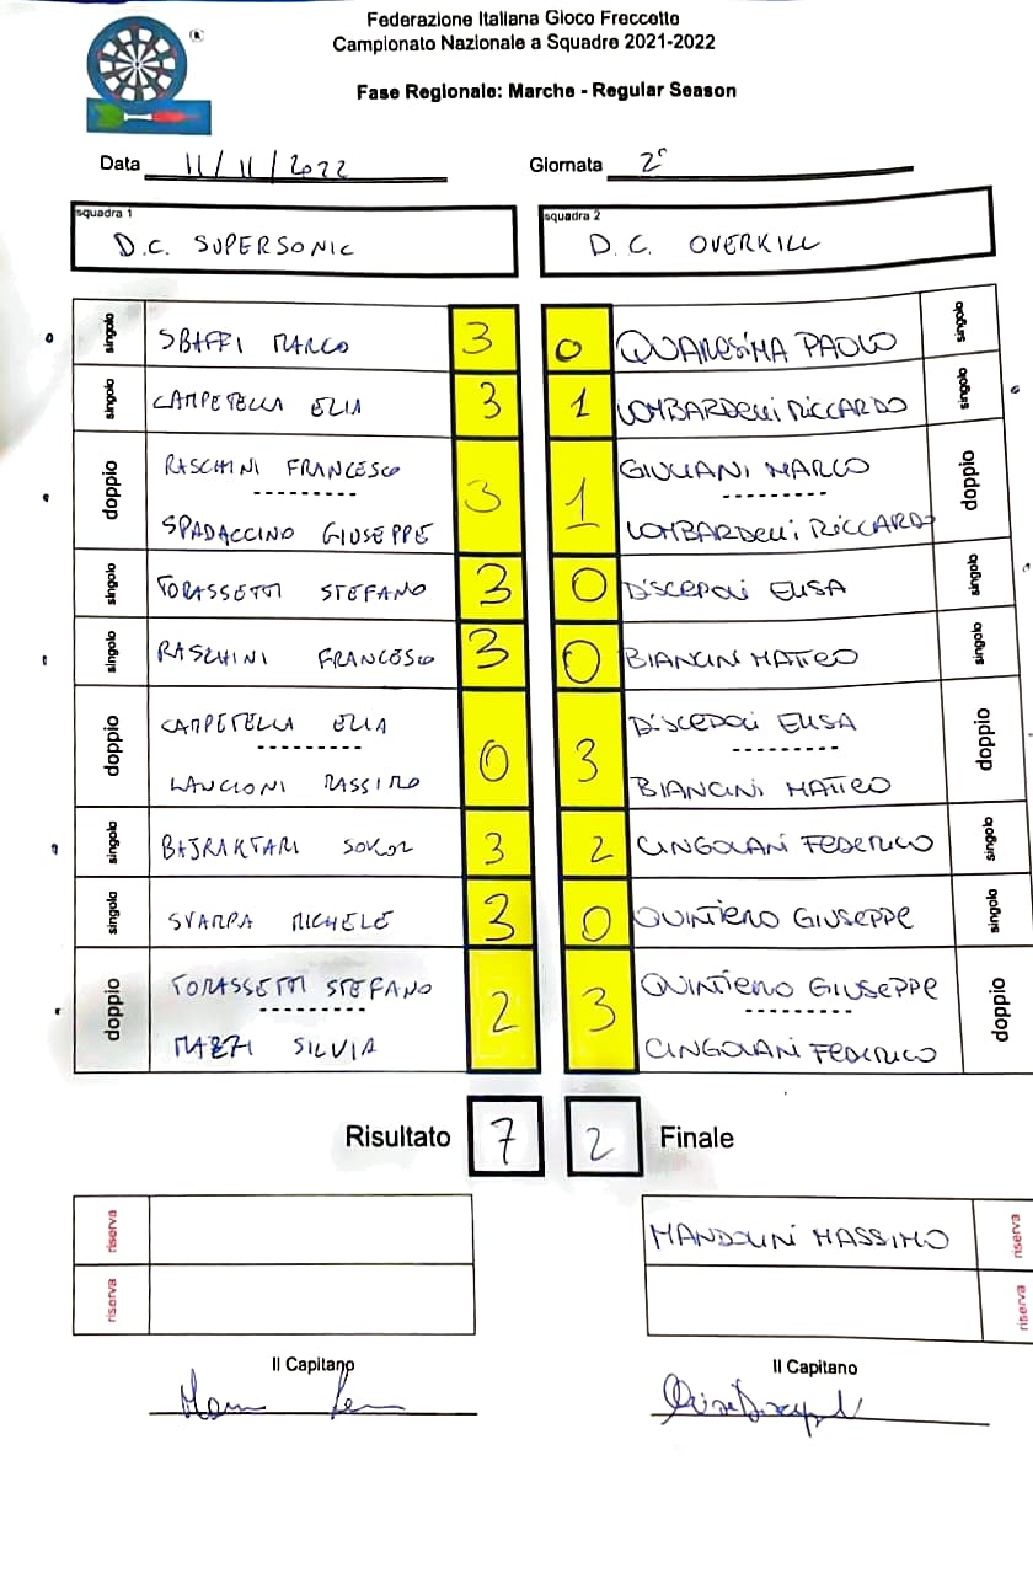 Federazione Italiana Gioco Freccette
Campionato Nazionale a Squadre 2021-2022
Fase Regionale: Marche - Regular Season
Data 11/11/2022 Giornata 2°
squadra 1 squadra 2
D.C. SUPERSONIC D.C. OVERKILL
singolo SBAFFI MARCO 3 0 QUARESIMA PAOLO singolo
singolo CAMPETELLA ELIA 3 1 LOMBARDELLI RICCARDO singolo
doppio RASCHINI FRANCESCO 3 1 GIULIANI MARCO doppio
SPADACCINO GIUSEPPE LOMBARDELLI RICCARDO
singolo TORASSETTI STEFANO 3 0 DISCEPOLI ELISA singolo
singolo RASCHINI FRANCESCO 3 0 BIANCINI MATTEO singolo
doppio CAMPETELLA ELIA 0 3 DISCEPOLI ELISA doppio
LANCIONI MASSIMO BIANCINI MATTEO
singolo BAJRAKTARI SOKOL 3 2 CINGOLANI FEDERICO singolo
singolo SVARPA MICHELE 3 0 QUINTIERO GIUSEPPE singolo
doppio TORASSETTI STEFANO 2 3 QUINTIERO GIUSEPPE doppio
MAZZI SILVIA CINGOLANI FEDERICO
Risultato 7 2 Finale
riserva MANDOLINI MASSIMO riserva
riserva riserva
Il Capitano Il Capitano